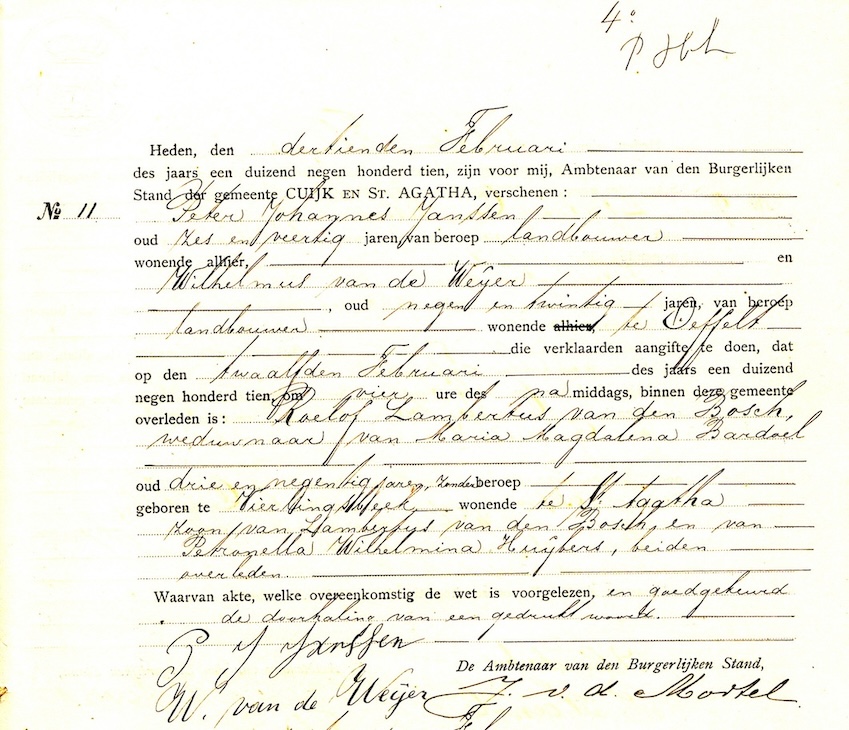 4o
Heden, den dertienden Februari
des jaars een duizend negen honderd tien, zijn voor mij, Ambtenaar van den Burgerlijken
Stand der gemeente CUIJK EN ST. AGATHA, verschenen :
No 11
Peter Johannes Janssen
oud zes en veertig jaren, van beroep landbouwer
wonende alhier, en
Wilhelmus van de Weijer
, oud negen en twintig jaren, van beroep
landbouwer wonende alhier, te Oeffelt
die verklaarden aangifte te doen, dat
op den twaalfden Februari des jaars een duizend
negen honderd tien, om vier ure des na middags, binnen deze gemeente
overleden is : Roelof Lambertus van den Bosch,
weduwnaar van Maria Magdalena Bardoel
oud drie en negentig jaren, zonder beroep
geboren te Vierlingsbeek wonende te St. Agatha
zoon van Lambertus van den Bosch, en van
Petronella Wilhelmina Huijbers, beiden
overleden.
Waarvan akte, welke overeenkomstig de wet is voorgelezen, en goedgekeurd
de doorhaling van een gedrukt woord.
P J Janssen
De Ambtenaar van den Burgerlijken Stand,
W. van de Weijer J. v. d. Mortel